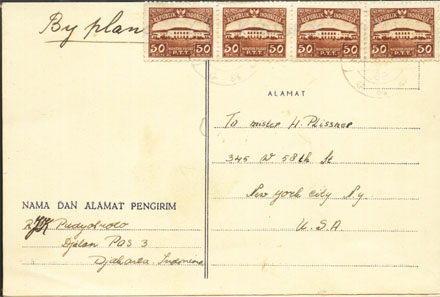 By plane
REPUBLIK INDONESIA REPUBLIK INDONESIA REPUBLIK INDONESIA REPUBLIK INDONESIA
50 50 50 50 50 50 50 50
SEN SEN SEN SEN SEN SEN SEN SEN
P.T.T. P.T.T. P.T.T. P.T.T.
ALAMAT
To mister H. Plissner
345 W 58th St
New york city N.y.
U.S.A
NAMA DAN ALAMAT PENGIRIM
Pudyobroto
Djalan Pos 3
Djakarta Indonesia